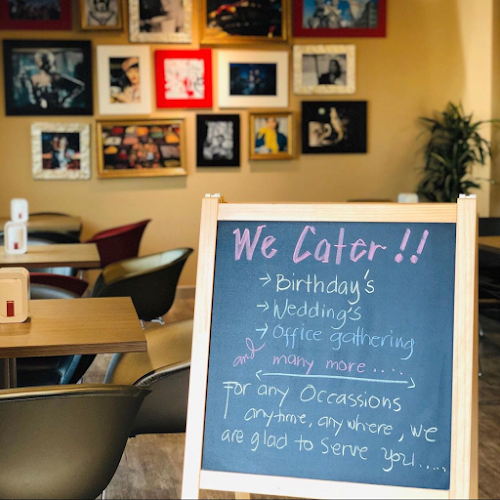 We Cater!!
→ Birthday's
→ Wedding's
→ Office gathering
and many more.....
For any Occassions
anytime, anywhere, we
are glad to serve you.....